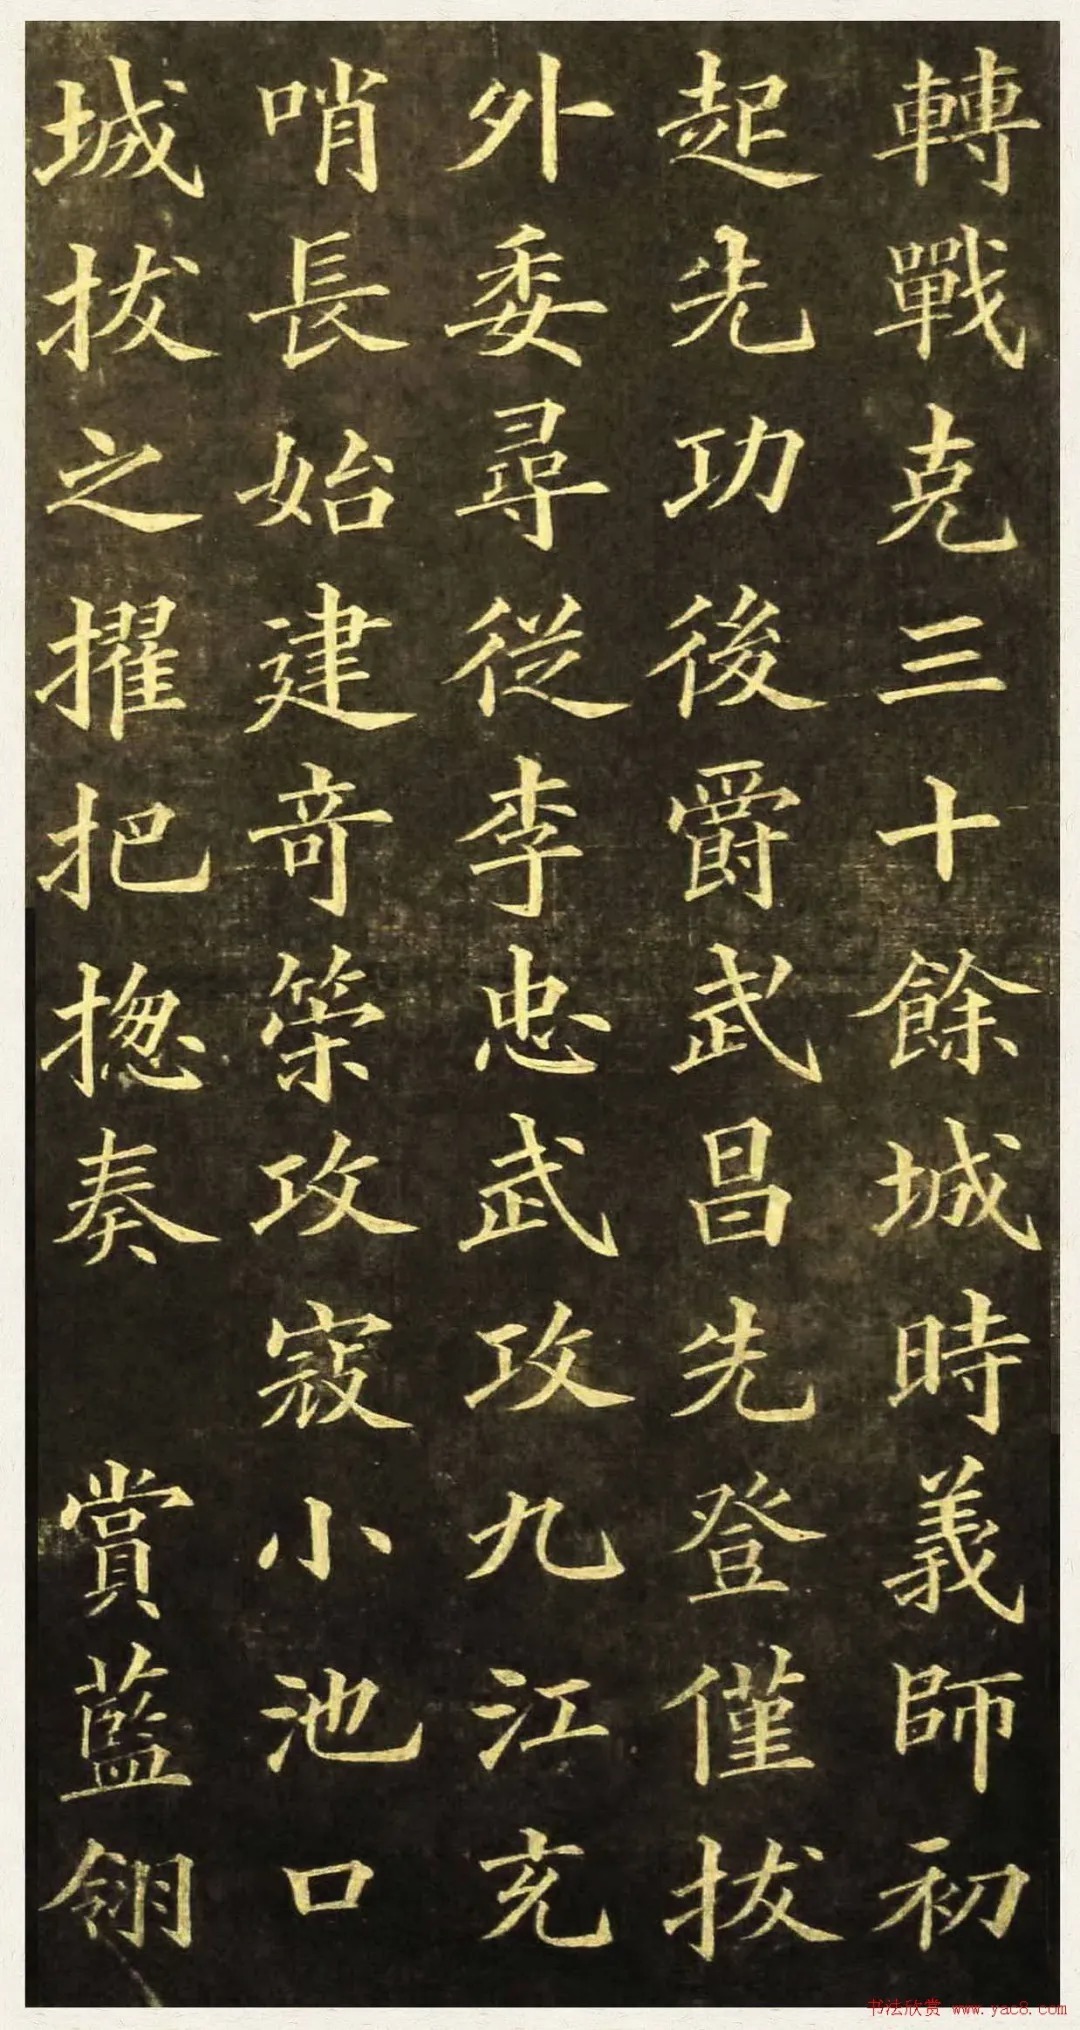 轉戰克三十餘城時義師初
起先功後爵武昌先登僅拔
外委尋從李忠武攻九江充
哨長始建奇策攻寇小池口
城拔之擢把揔奏 賞藍翎
书法欣赏 www.yac8.com